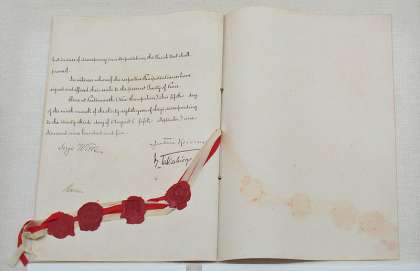 but in case of discrepancy in interpretation, the French text shall
prevail.
In witness whereof, the respective Plenipotentiaries have
signed and affixed their seals to the present Treaty of Peace.
Done at Portsmouth (New Hampshire) this fifth day
of the ninth month of the thirty eighth year of Meiji corresponding
to the twenty third day of August (fifth September) one
thousand nine hundred and five.
Serge Witte
Jutaro Komura
K. Takahira
Rosen